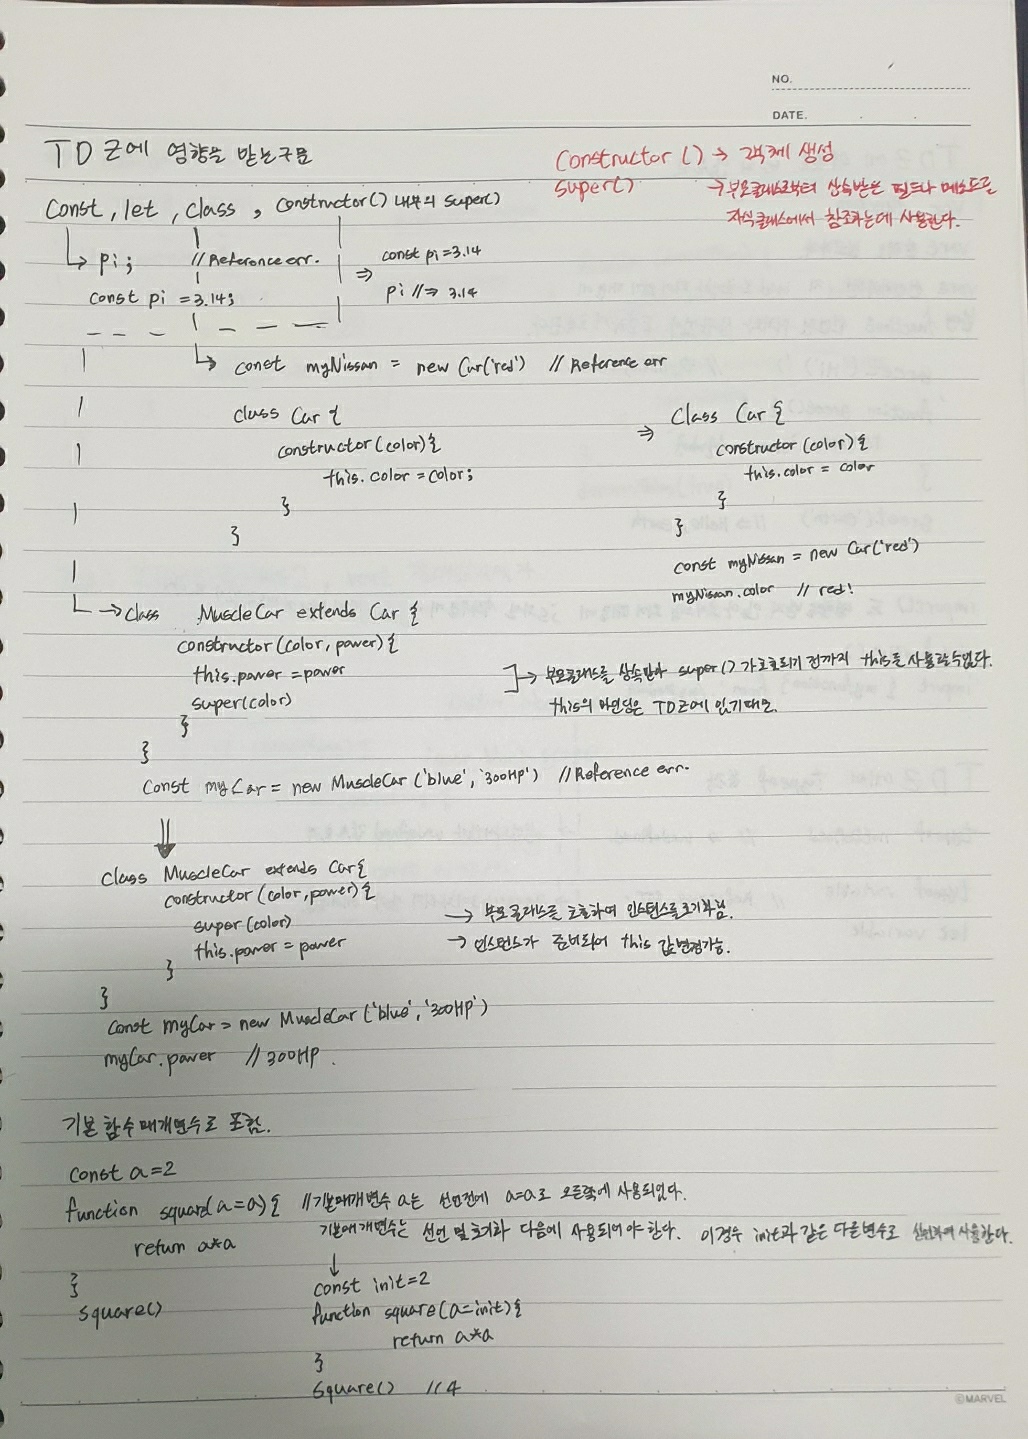 NO.
DATE.
TDZ에 영향을 받는구문
Constructor () → 객체 생성
super() → 부모클래스로부터 상속받은 필드나 메소드를
자식클래스에서 참조하는데 사용한다.
Const, let, class, constructor() 내부의 super()
pi; // Reference err. ⇒ const pi = 3.14
const pi = 3.14; pi // ⇒ 3.14
const myNissan = new Car('red') // Reference err
class Car {
constructor (color) {
this.color = color;
}
}
⇒ Class Car {
constructor (color) {
this.color = color
}
}
const myNissan = new Car('red')
myNissan.color // red!
→ class MuscleCar extends Car {
constructor (color, power) {
this.power = power
super(color)
}
}
→ 부모클래스를 상속받아 super() 가 호출되기 전까지 this를 사용할수없다.
this의 바인딩은 TDZ에 있기때문.
Const myCar = new MuscleCar ('blue', '300HP') // Reference err.
⇓
class MuscleCar extends Car {
constructor (color, power) {
super (color) → 부모클래스를 호출하여 인스턴스를 초기화됨.
this.power = power → 인스턴스가 준비되어 this 값변경가능.
}
}
Const myCar = new MuscleCar ('blue', '300HP')
myCar.power // 300HP.
기본 함수 매개변수로 포함.
const a=2
function square(a=a) { // 기본매개변수 a는 선언전에 a=a로 오른쪽에 사용되었다.
return a*a 기본매개변수는 선언 및 초기화 다음에 사용되어야 한다. 이경우 init과 같은 다른변수로 사용한다.
}
square()
↓
const init=2
function square(a=init) {
return a*a
}
square() // 4
©MARVEL